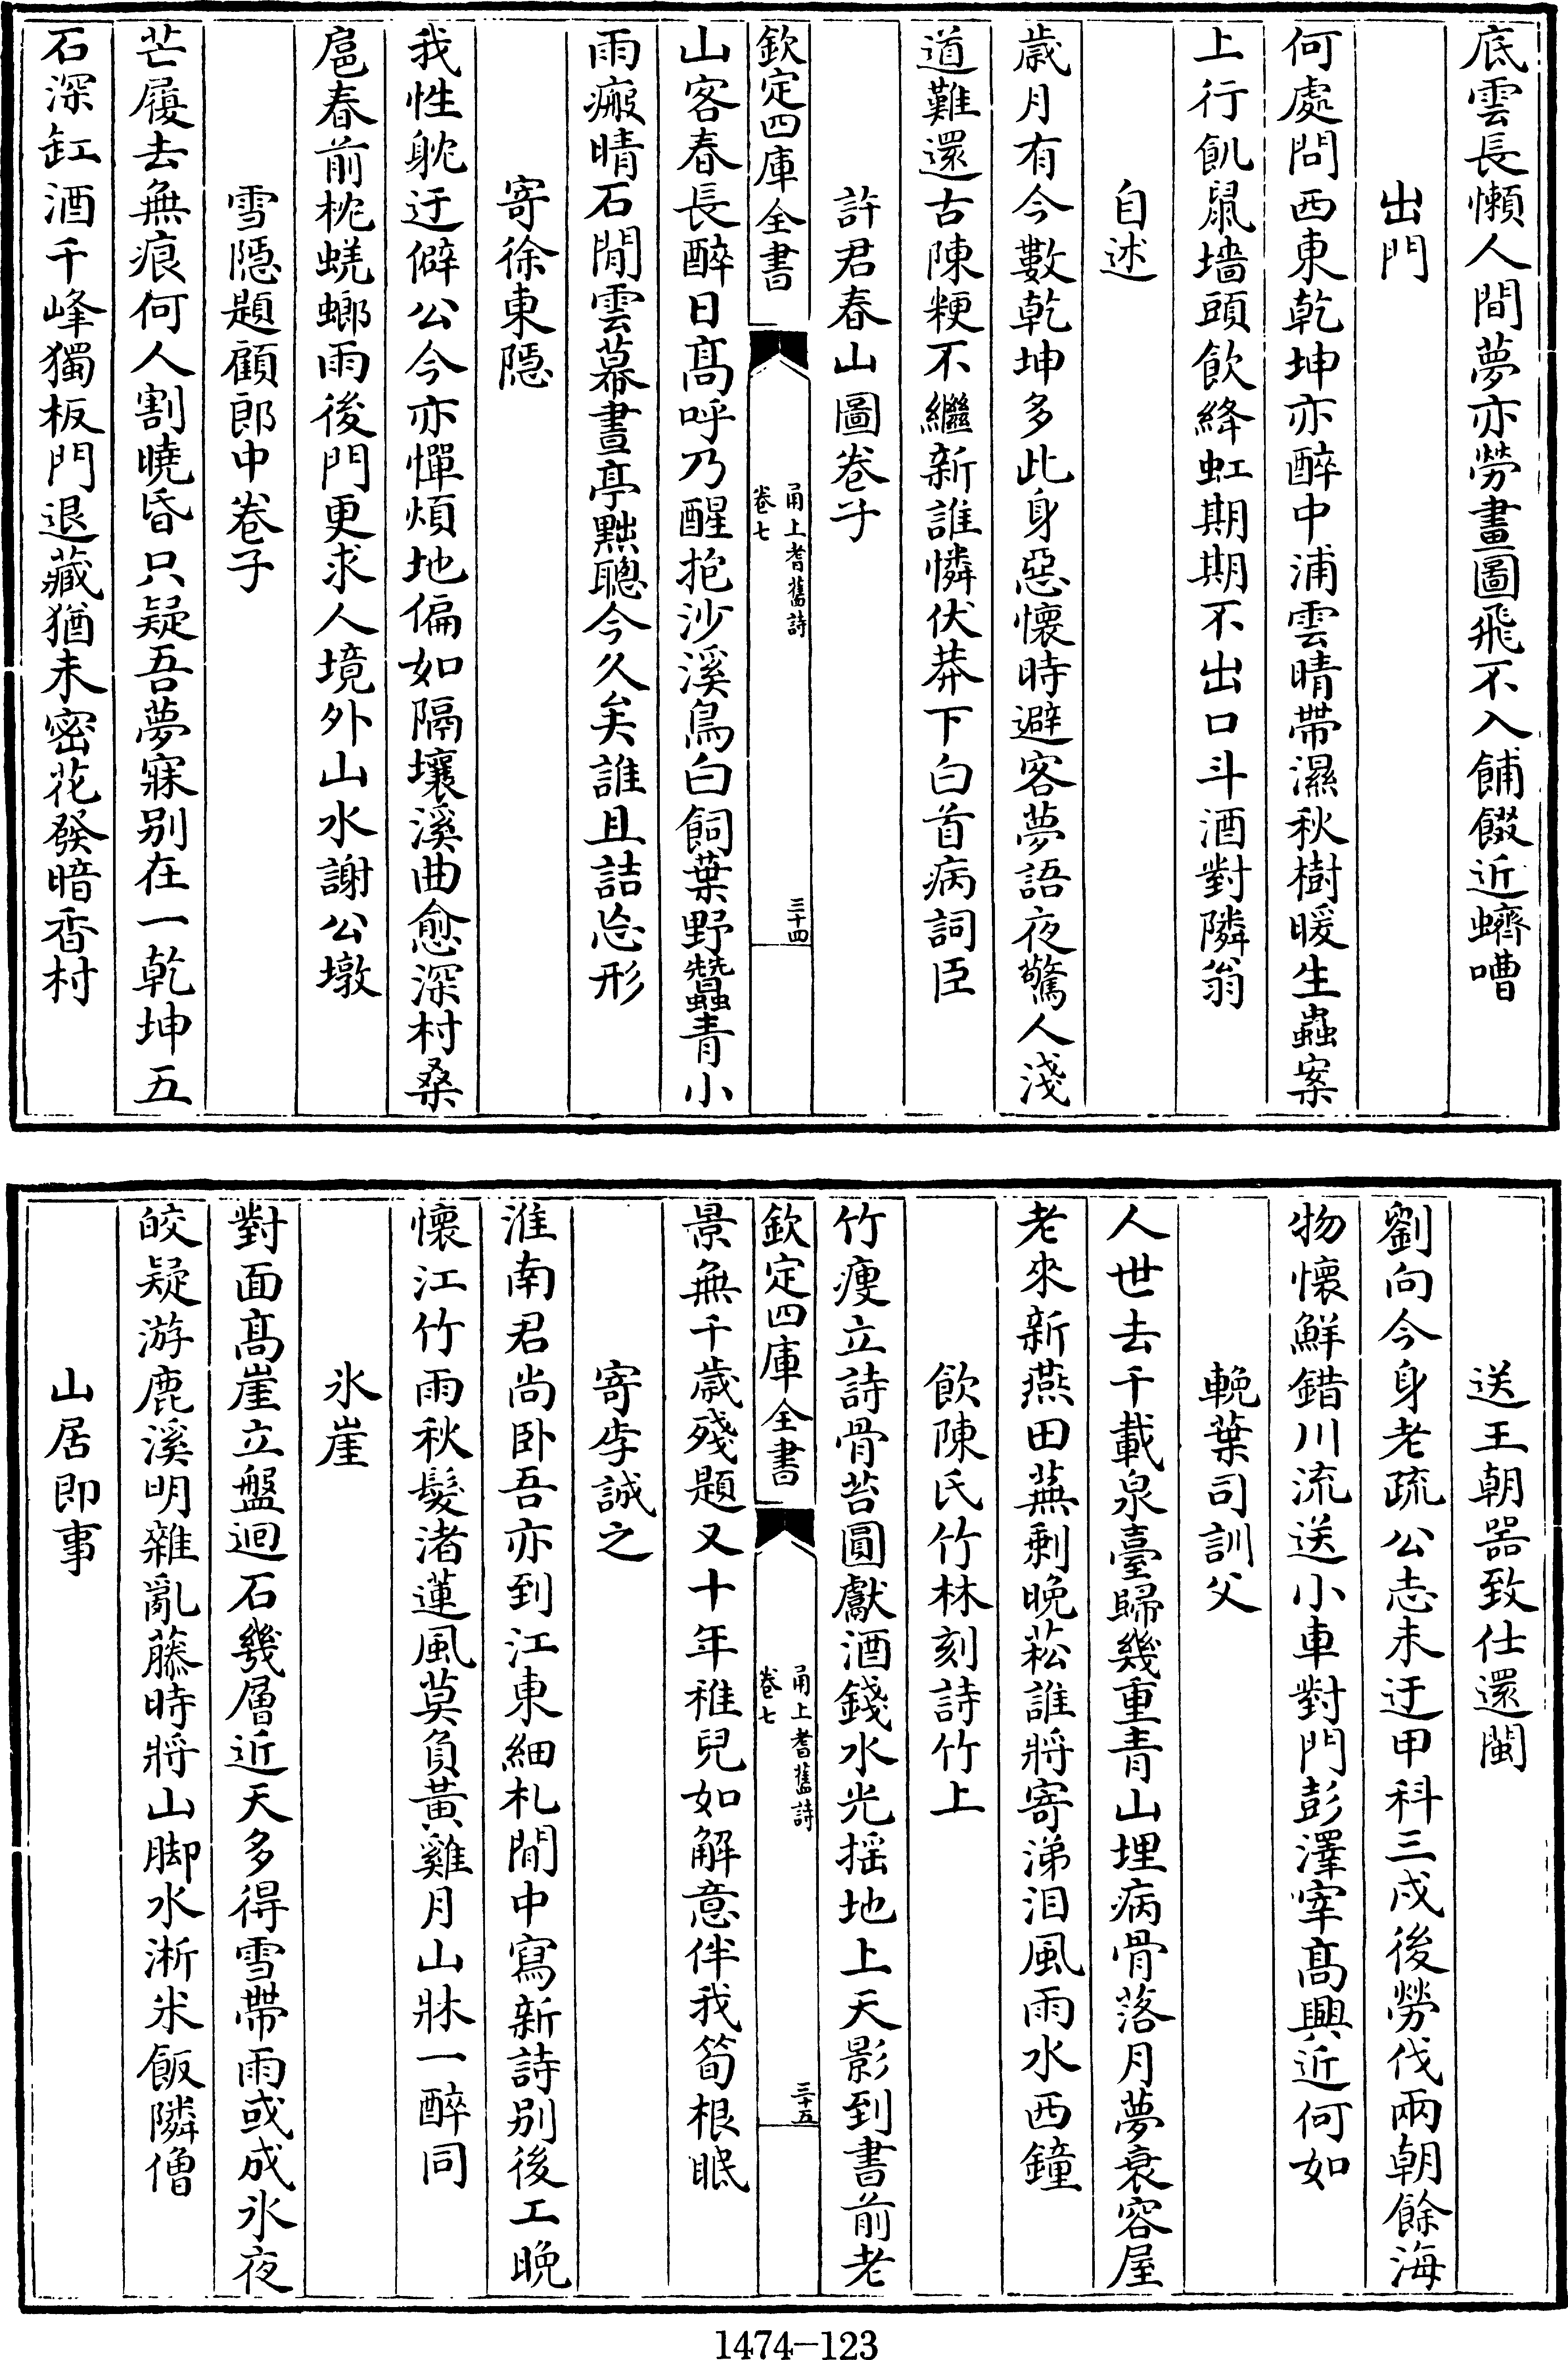 底雲長懶人間夢亦勞畫圖飛不入餔餟近蠐嘈
出門
何處問西東乾坤亦醉中浦雲晴帶濕秋樹暖生蟲案
上行飢鼠墻頭飲絳虹期期不出口斗酒對隣翁
自述
歲月有今數乾坤多此身惡懷時避客夢語夜驚人淺
道難還古陳粳不繼新誰憐伏莽下白首病詞臣
許君春山圖卷子
欽定四庫全書
甬上耆舊詩
卷七
三十四
山客春長醉日髙呼乃醒抱沙溪鳥白飼葉野蠶青小
雨瘢晴石閒雲幕晝亭黜聰今久矣誰且詰忘形
寄徐東隱
我性躭迂僻公今亦憚煩地偏如隔壤溪曲愈深村桑
扈春前枕蜣螂雨後門更求人境外山水謝公墩
雪隱題顧郎中卷子
芒屨去無痕何人割曉昏只疑吾夢寐别在一乾坤五
石深缸酒千峰獨板門退藏猶未密花發暗香村
送王朝器致仕還閩
劉向今身老疏公志未迂甲科三戍後勞伐兩朝餘海
物懷鮮錯川流送小車對門彭澤宰髙興近何如
輓葉司訓父
人世去千載泉臺歸幾重青山埋病骨落月夢衰容屋
老來新燕田蕪剩晚菘誰將寄涕泪風雨水西鐘
飲陳氏竹林刻詩竹上
竹瘦立詩骨苔圓獻酒錢水光摇地上天影到書前老
欽定四庫全書
甬上耆舊詩
卷七
三十五
景無千歲殘題又十年稚兒如解意伴我筍根眠
寄李誠之
淮南君尚卧吾亦到江東細札閒中寫新詩别後工晚
懷江竹雨秋髮渚蓮風莫負黃雞月山牀一醉同
氷崖
對面髙崖立盤迴石幾層近天多得雪帶雨或成氷夜
皎疑游鹿溪明雜亂藤時將山脚水淅米飯隣僧
山居即事
1474-123